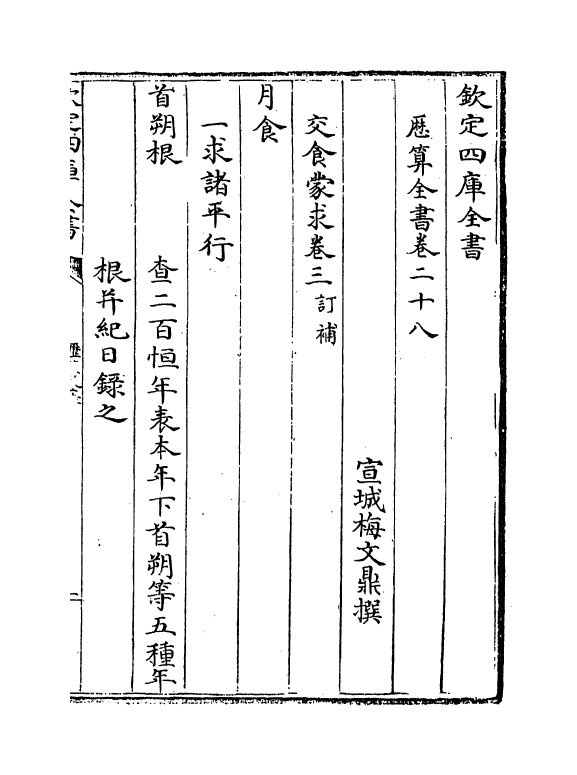 欽定四庫全書
厯算全書卷二十八
宣城梅文鼎撰
交食蒙求卷三訂補
月食
一求諸平行
首朔根　查二百恒年表本年下首朔等五種年
根并紀日録之